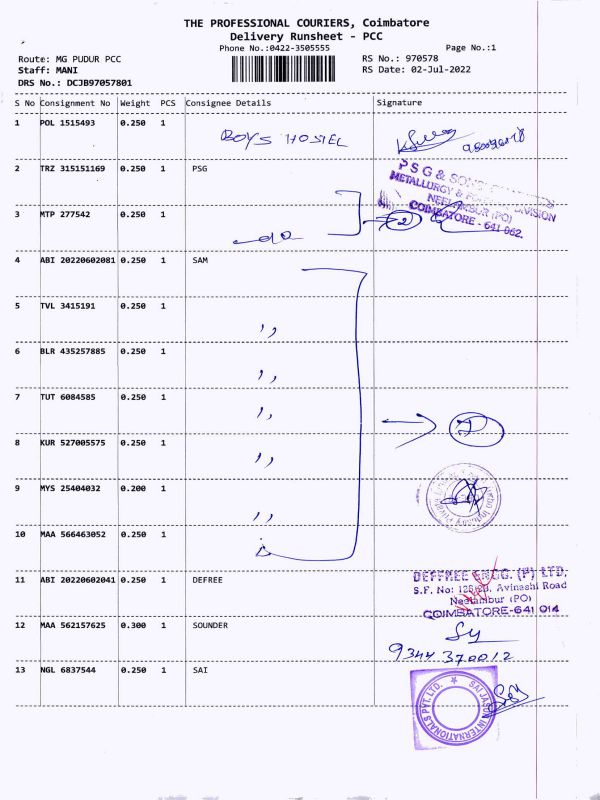 THE PROFESSIONAL COURIERS, Coimbatore
Delivery Runsheet - PCC
Phone No.:0422-3505555
Page No.:1
Route: MG PUDUR PCC
RS No.: 970578
Staff: MANI
RS Date: 02-Jul-2022
DRS No.: DCJB97057801
S No Consignment No Weight PCS Consignee Details Signature
1 POL 1515493 0.250 1 BOYS HOSTEL
2 TRZ 315151169 0.250 1 PSG
PSG & SONS
METALLURGY & DIVISION
NEELAMBUR (PO)
COIMBATORE - 641 062.
3 MTP 277542 0.250 1 do 2
4 ABI 20220602081 0.250 1 SAM
5 TVL 3415191 0.250 1 ,,
6 BLR 435257885 0.250 1 ,,
7 TUT 6084585 0.250 1 ,, 7
8 KUR 527005575 0.250 1 ,,
9 MYS 25404032 0.200 1 ,,
10 MAA 566463052 0.250 1
11 ABI 20220602041 0.250 1 DEFREE
DEFFREE ENGG. (P) LTD.
S.F. No: Avinashi Road
Neelambur (PO)
COIMBATORE-641 014
12 MAA 562157625 0.300 1 SOUNDER
9344 370012
13 NGL 6837544 0.250 1 SAI
SAI JASON INTERNATIONALS PVT. LTD.